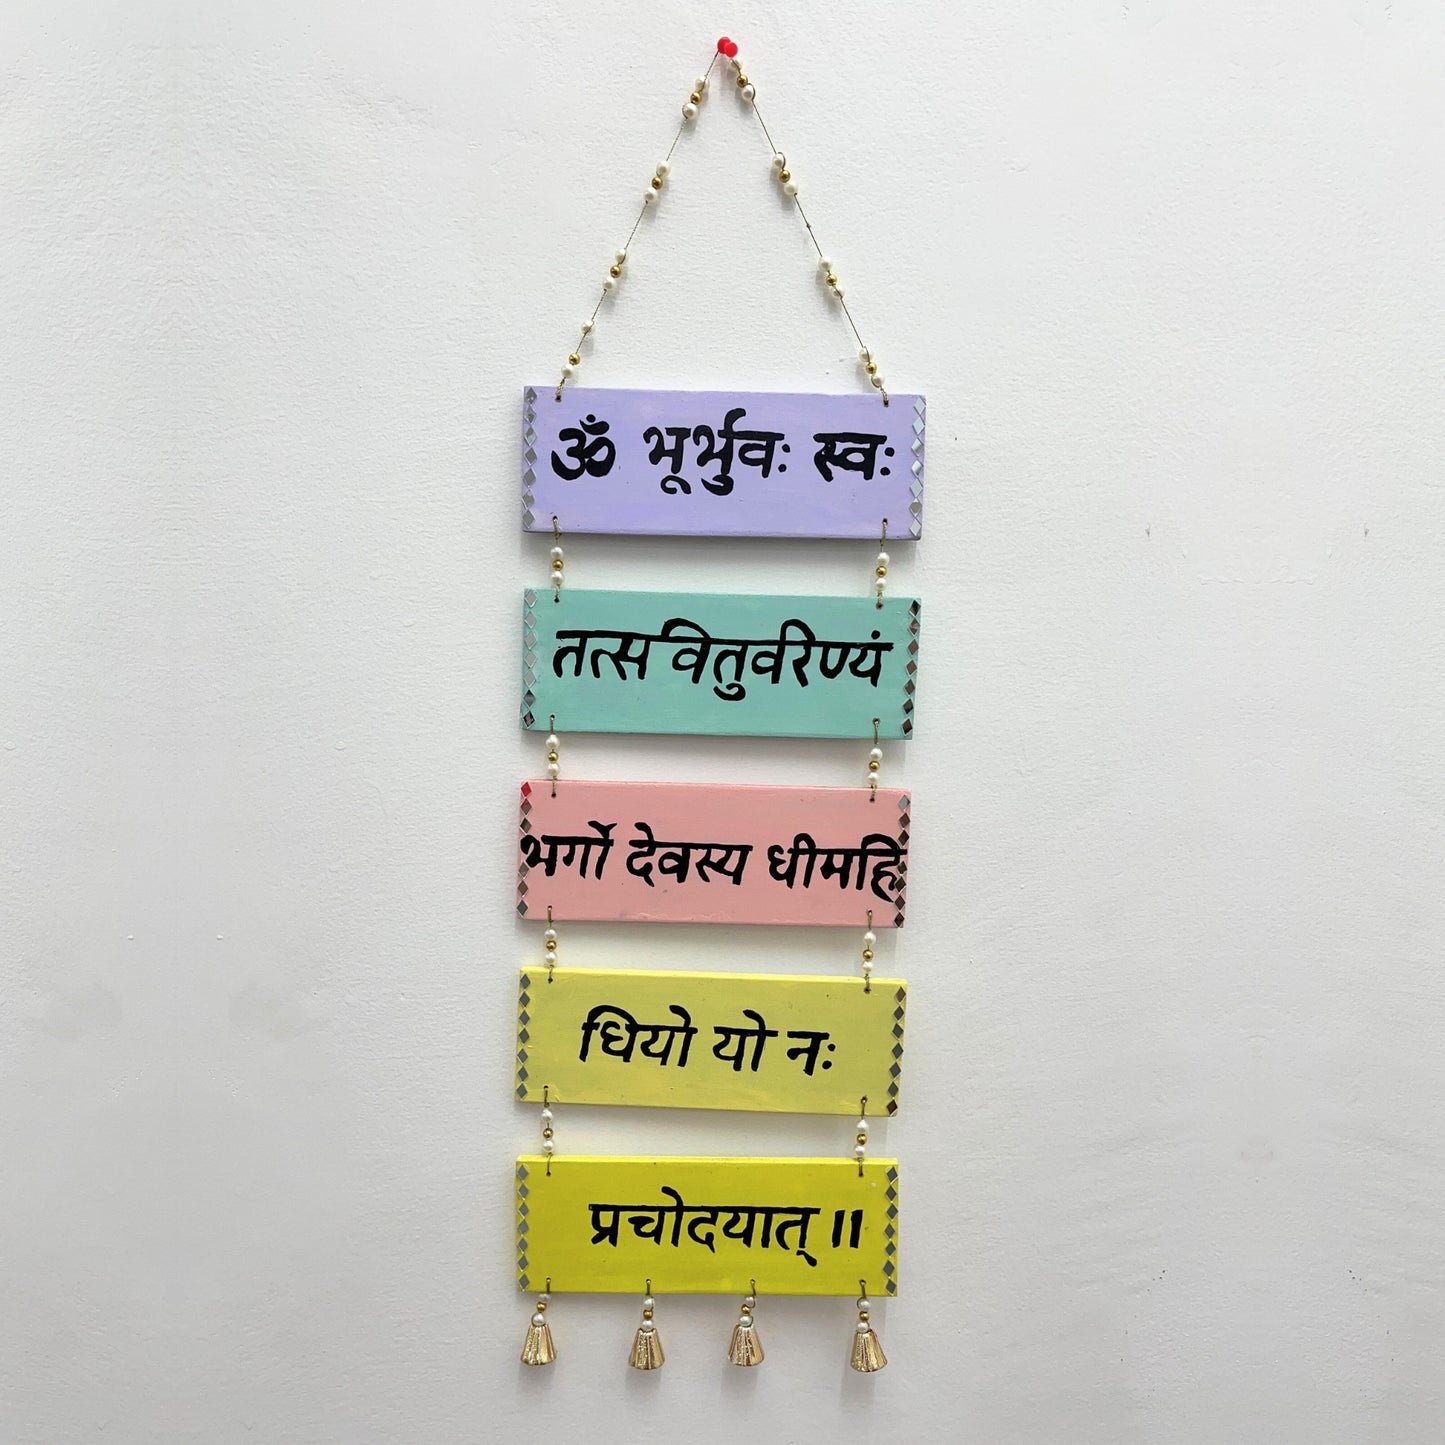 ॐ भूर्भुवः स्वः
तत्सवितुर्वरिण्यं
भर्गो देवस्य धीमहि
धियो यो नः
प्रचोदयात् ॥